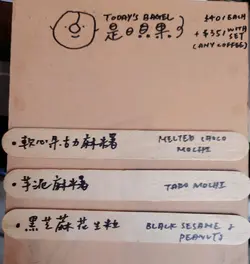 TODAY'S BAGEL
是日貝果
$40/EACH
+$35/WITH
SET
(ANY COFFEE)
・軟心朱古力麻糬
MELTED CHOCO
MOCHI
・芋泥麻糬
TARO MOCHI
・黑芝蔴花生粒
BLACK SESAME &
PEANUTS